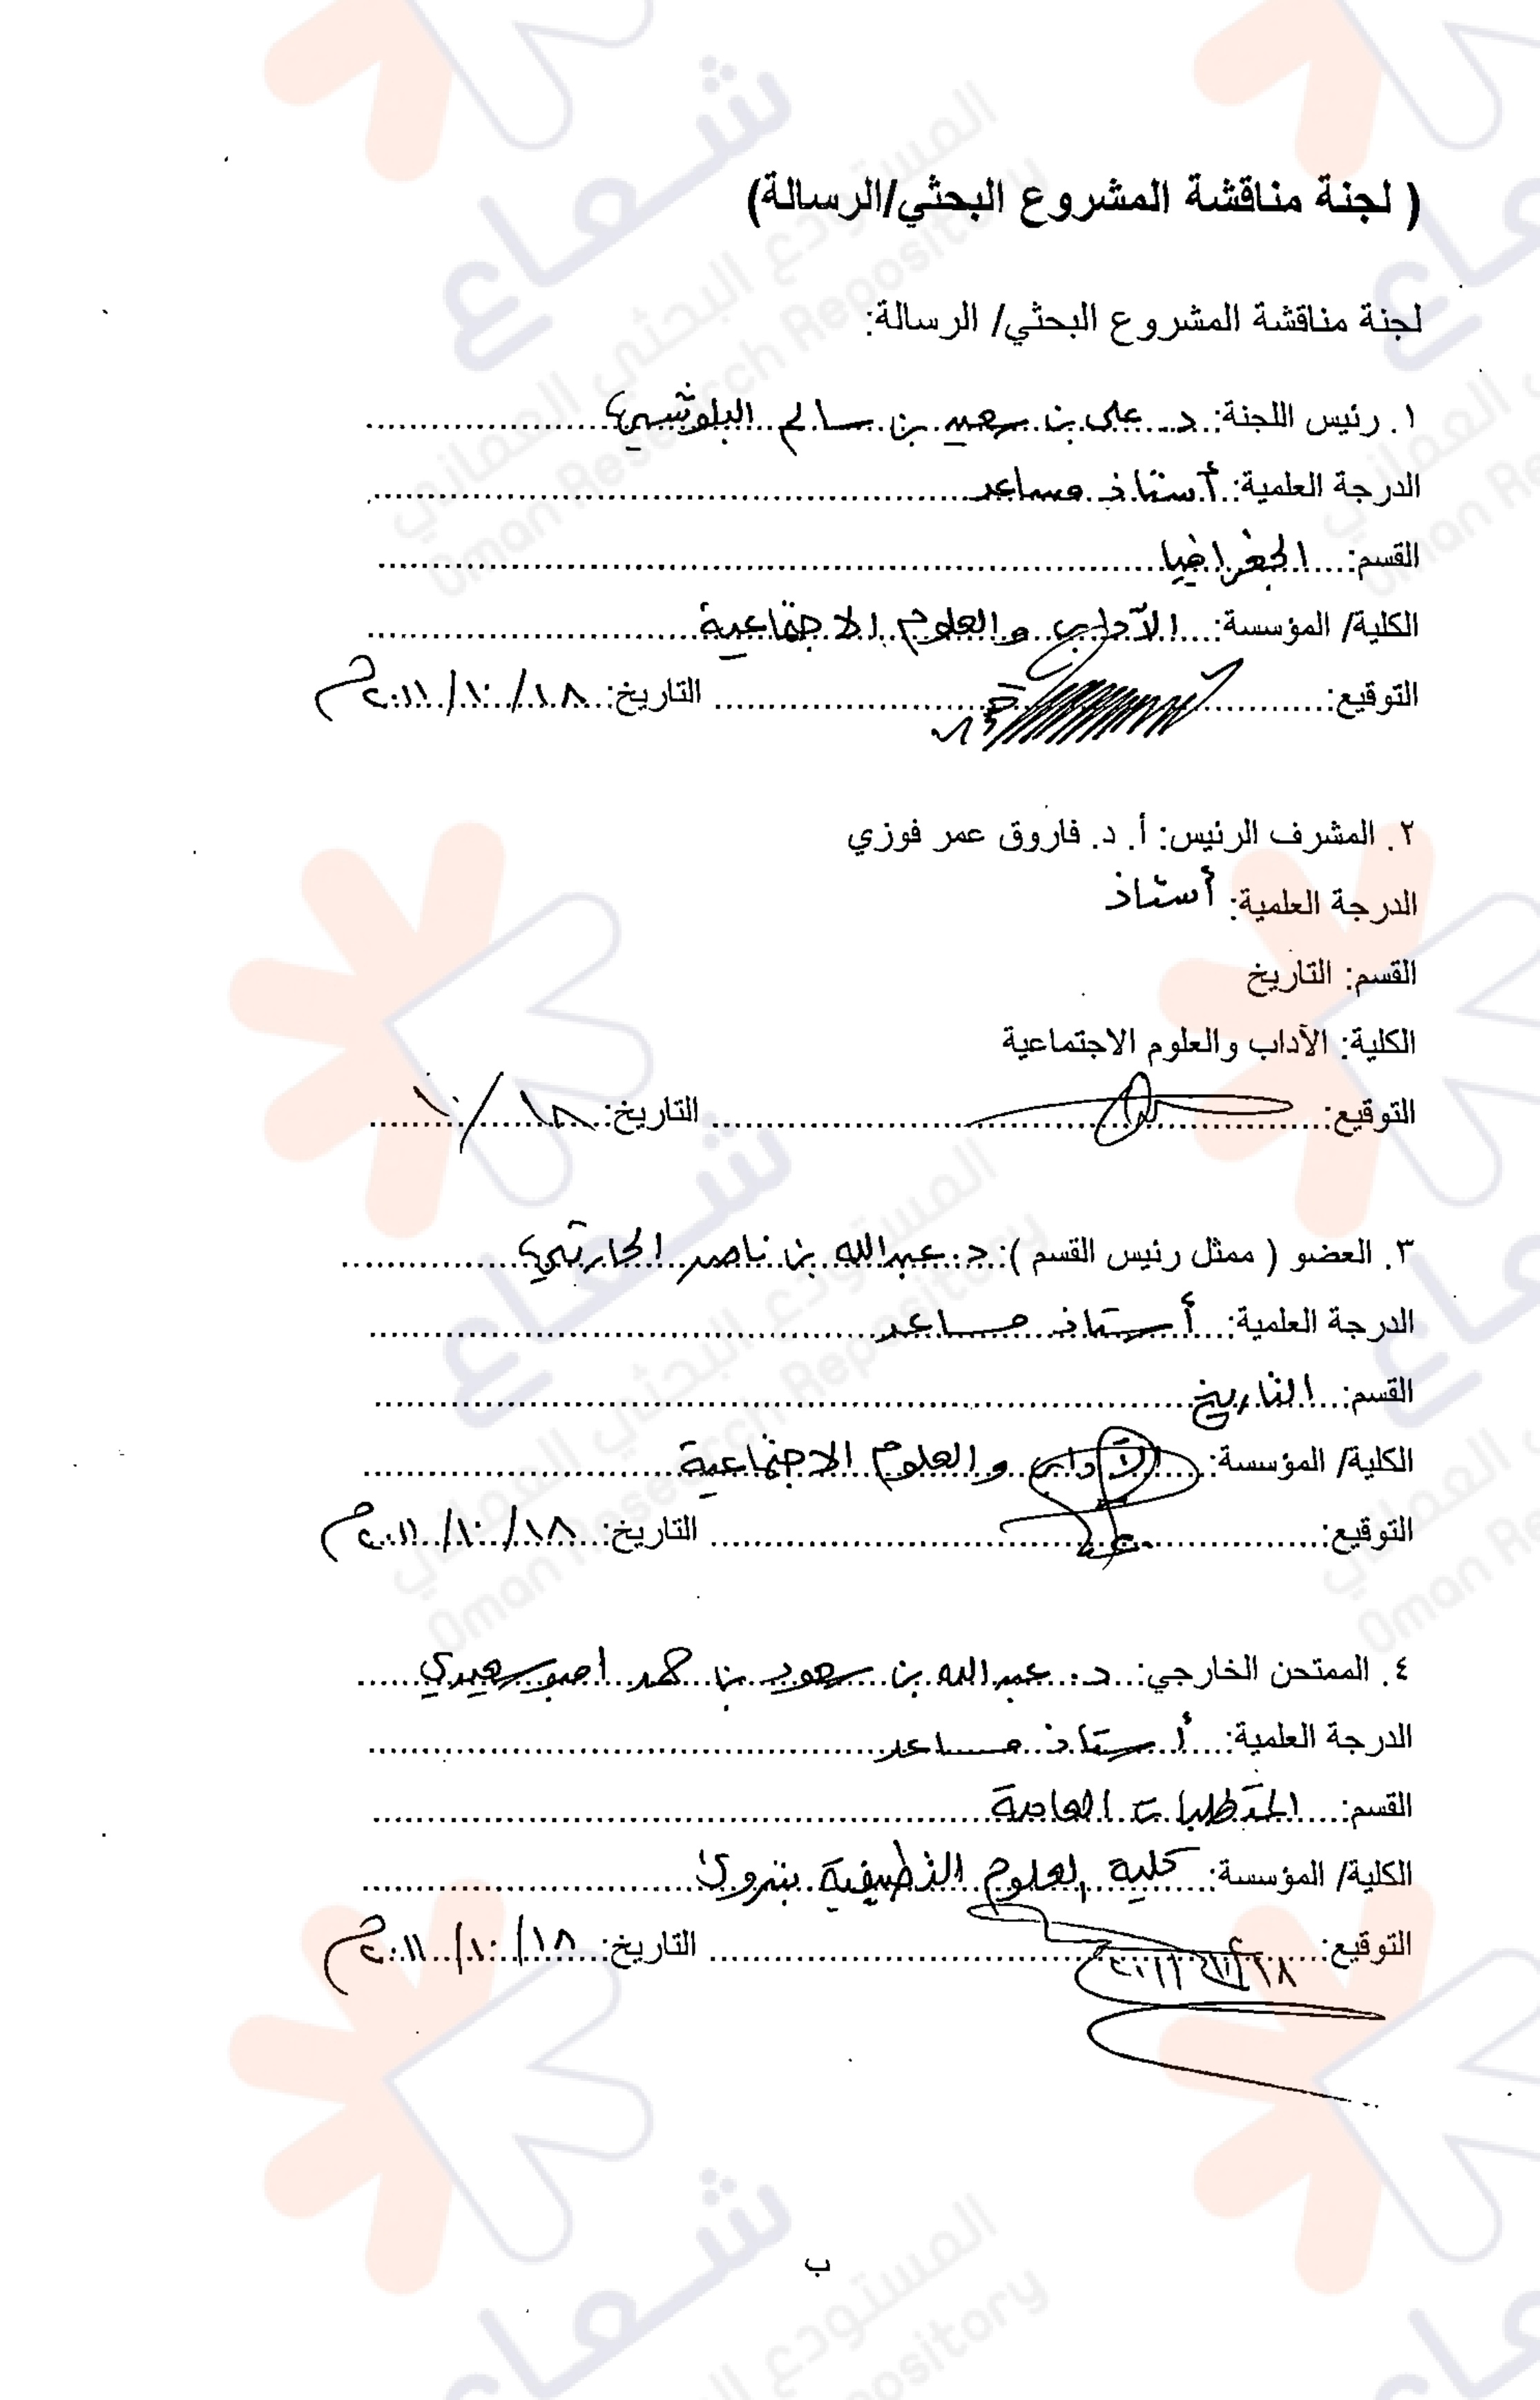 ( لجنة مناقشة المشروع البحثي/الرسالة)
لجنة مناقشة المشروع البحثي/ الرسالة:
١. رئيس اللجنة: د. علي بن سعيد بن سالم البلوشي
الدرجة العلمية: أستاذ مساعد
القسم: الجغرافيا
الكلية/ المؤسسة: الآداب والعلوم الاجتماعية
التوقيع: التاريخ: ١٨/١٠/٢٠١١م
٢. المشرف الرئيس: أ. د. فاروق عمر فوزي
الدرجة العلمية: أستاذ
القسم: التاريخ
الكلية: الآداب والعلوم الاجتماعية
التوقيع: التاريخ: ١٨/١٠
٣. العضو ( ممثل رئيس القسم ): د. عبدالله بن ناصر الحارثي
الدرجة العلمية: أستاذ مساعد
القسم: التاريخ
الكلية/ المؤسسة: الآداب والعلوم الاجتماعية
التوقيع: التاريخ: ١٨/١٠/٢٠١١م
٤. الممتحن الخارجي: د. عبدالله بن سعود بن حمد امبوسعيدي
الدرجة العلمية: أستاذ مساعد
القسم: المتطلبات العامة
الكلية/ المؤسسة: كلية العلوم التطبيقية بنزوى
التوقيع: التاريخ: ١٨/١٠/٢٠١١م
ب
شعاع
المستودع البحثي العماني
Oman Research Repository